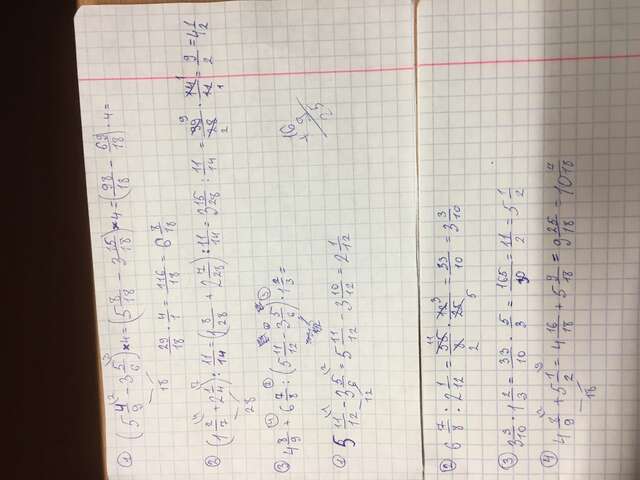 ① (5 4/9 - 3 5/6) × 4 = (5 8/18 - 3 15/18) × 4 = (98/18 - 69/18) · 4 =
29/18 · 4/1 = 116/18 = 6 8/18
② (1 2/7 + 2 1/4) : 11/14 = (1 8/28 + 2 7/28) : 11/14 = 3 15/28 : 11/14 = 99/28 · 14/11 = 9/2 = 4 1/2
③ 4 8/9 + 6 7/8 : (5 11/12 - 3 5/6) · 1 2/3 =
① 5 11/12 - 3 5/6 = 5 11/12 - 3 10/12 = 2 1/12
② 6 7/8 : 2 1/12 = 55/8 · 12/25 = 33/10 = 3 3/10
③ 3 3/10 · 1 2/3 = 33/10 · 5/3 = 165/30 = 11/2 = 5 1/2
④ 4 8/9 + 5 1/2 = 4 16/18 + 5 9/18 = 9 25/18 = 10